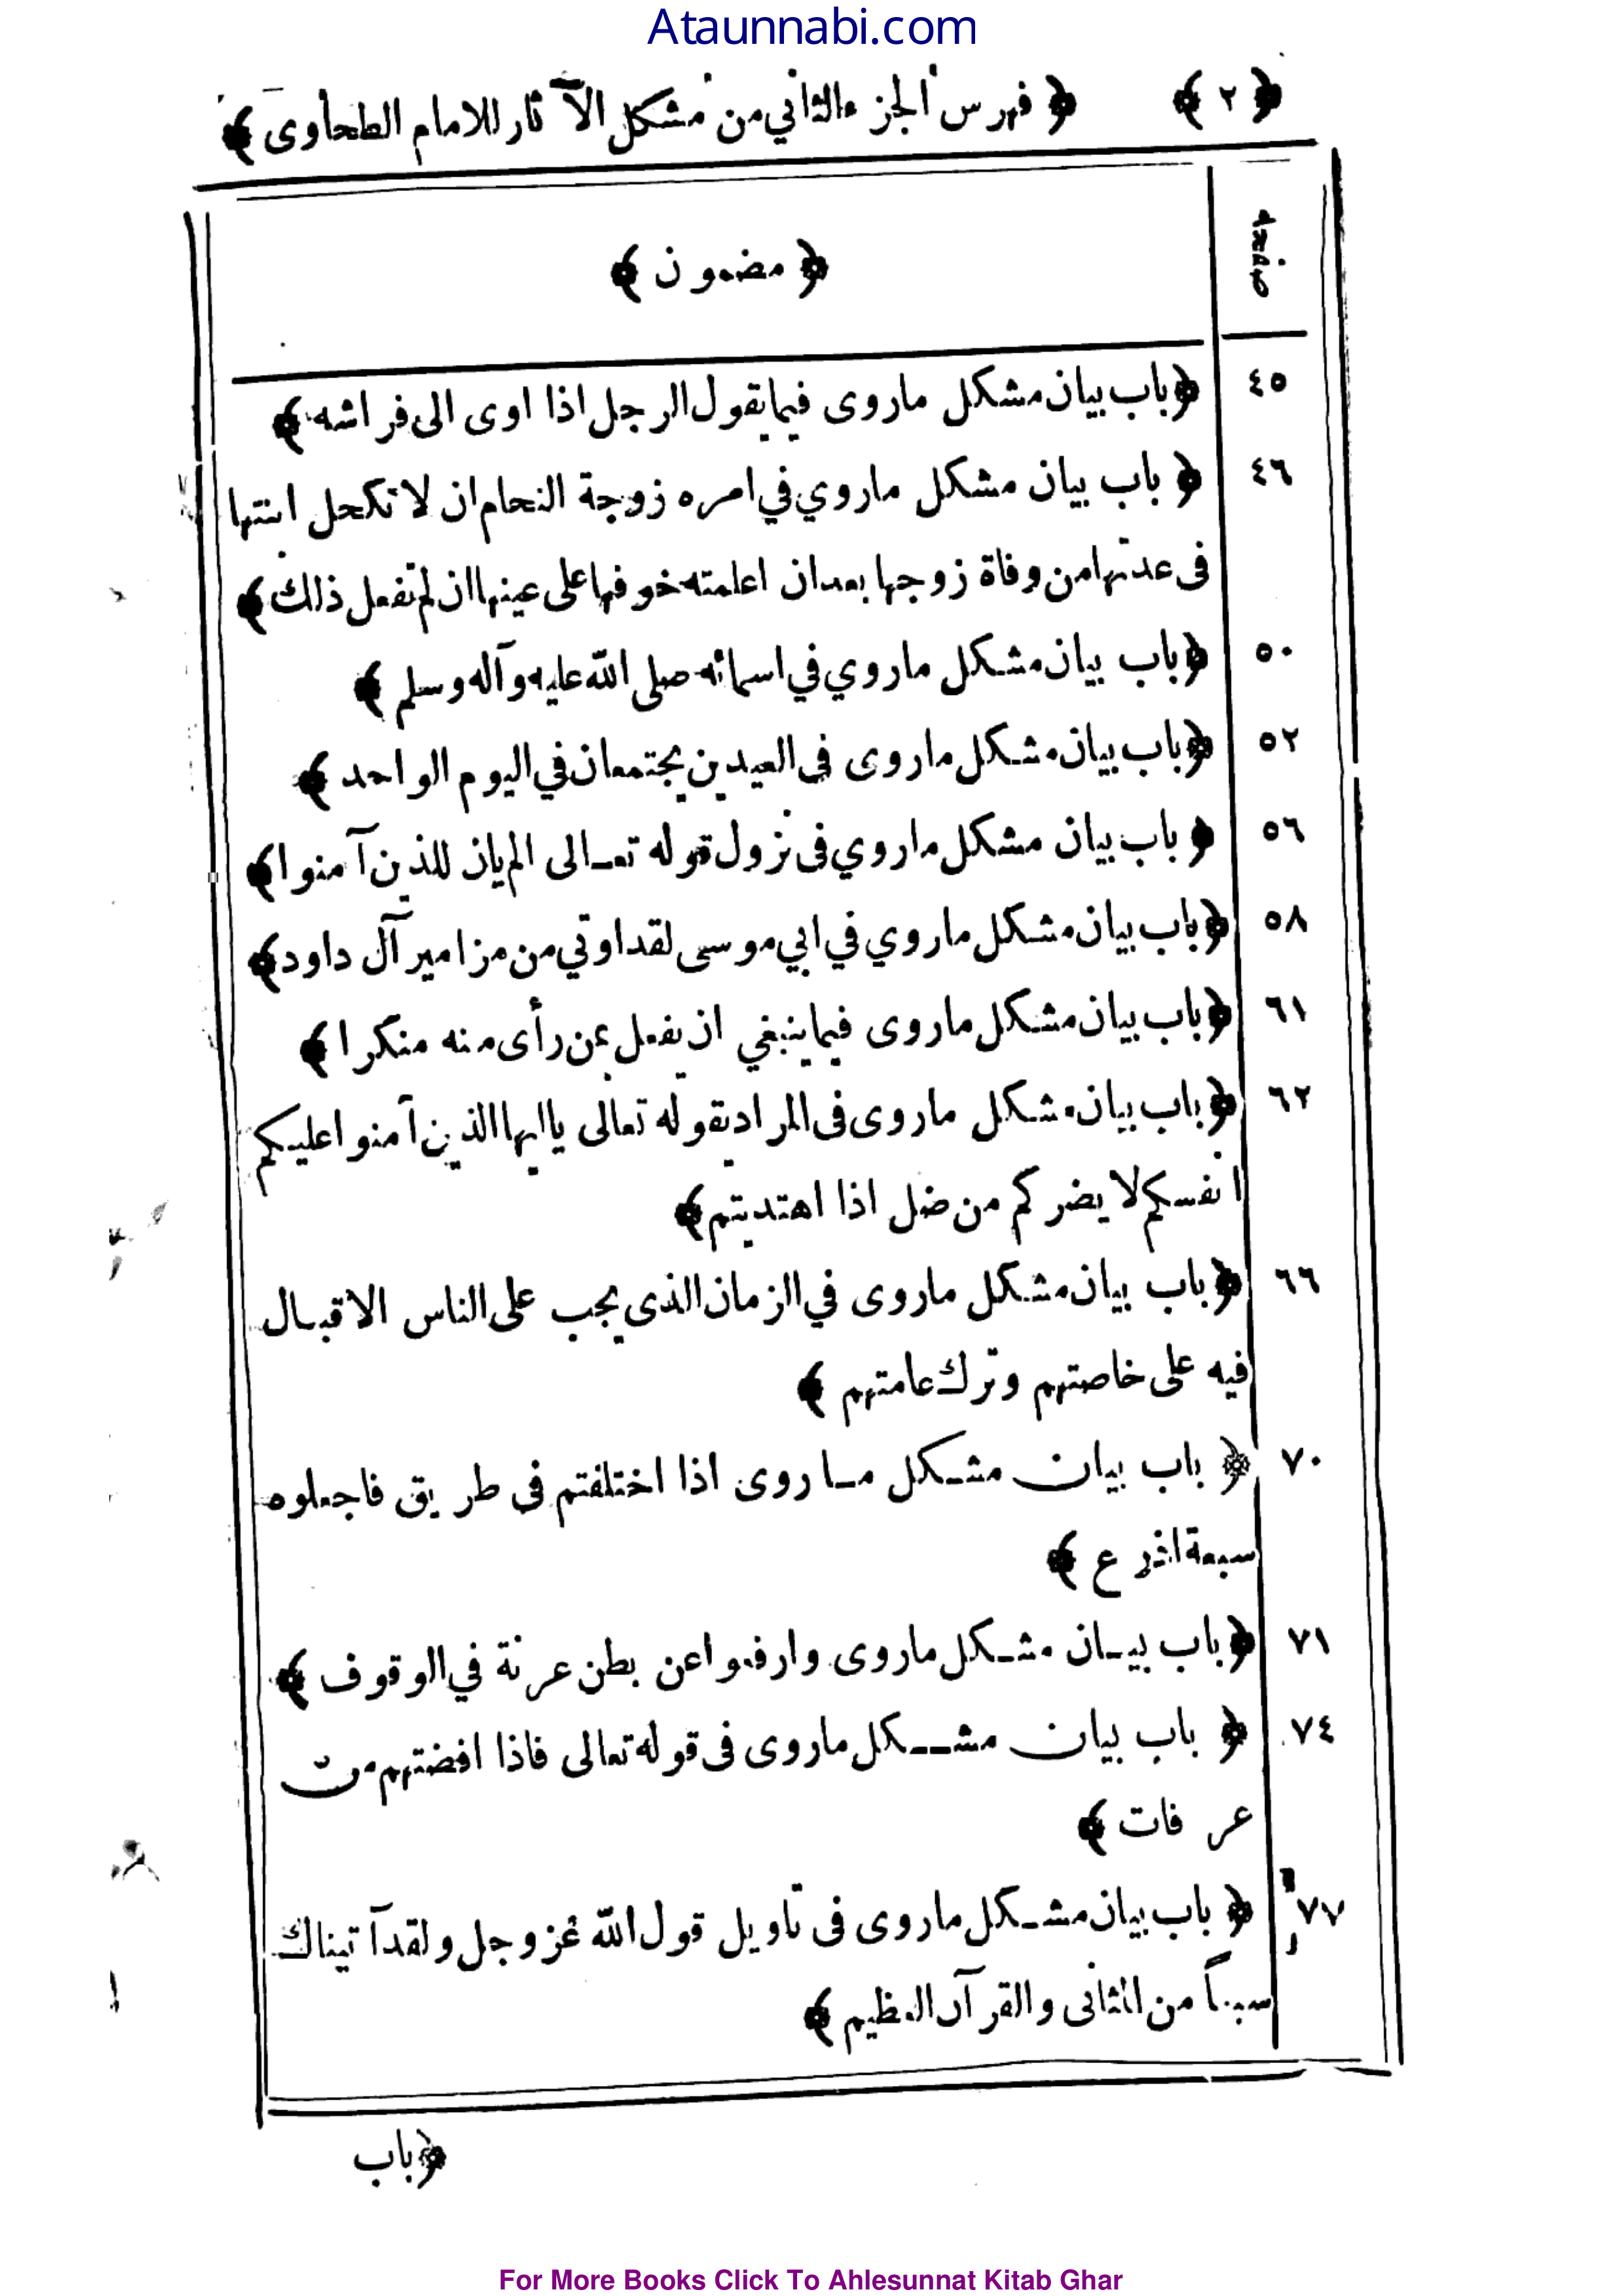 Ataunnabi.com
﴿ ٢ ﴾ ﴿ فهرس الجزء الثاني من مشكل الآثار للامام الطحاوى ﴾
صفحه ﴿ مضمون ﴾
٤٥ ﴿ باب بيان مشكل ماروى فيما يقول الرجل اذا اوى الى فراشه ﴾
٤٦ ﴿ باب بيان مشكل ماروي في امره زوجة النحام ان لا تكحل ابنتها
فى عدتها من وفاة زوجها بعد ان اعلمته خوفها على عينها ان لم تفعل ذلك ﴾
٥٠ ﴿ باب بيان مشكل ماروي في اسمائه صلى الله عليه وآله وسلم ﴾
٥٢ ﴿ باب بيان مشكل ماروى فى العيدين يجتمعان في اليوم الواحد ﴾
٥٦ ﴿ باب بيان مشكل ماروي فى نزول قوله تعالى الم يان للذين آمنوا ﴾
٥٨ ﴿ باب بيان مشكل ماروي في ابي موسى لقد اوتي من مزامير آل داود ﴾
٦١ ﴿ باب بيان مشكل ماروى فيما ينبغي ان يفعل بمن رأى منه منكرا ﴾
٦٢ ﴿ باب بيان مشكل ماروى فى المراد بقوله تعالى يا ايها الذين آمنوا عليكم
انفسكم لا يضركم من ضل اذا اهتديتم ﴾
٦٦ ﴿ باب بيان مشكل ماروى في الزمان الذى يجب على الناس الاقبال
فيه على خاصتهم وترك عامتهم ﴾
٧٠ ﴿ باب بيان مشكل ماروى اذا اختلفتم فى طريق فاجعلوه
سبعة اذرع ﴾
٧١ ﴿ باب بيان مشكل ماروى وارفعوا عن بطن عرنة في الوقوف ﴾
٧٤ ﴿ باب بيان مشكل ماروى فى قوله تعالى فاذا افضتهم من
عرفات ﴾
٧٧ ﴿ باب بيان مشكل ماروى فى تاويل قول الله عز وجل ولقد آتيناك
سبعاً من المثانى والقرآن العظيم ﴾
﴿ باب
For More Books Click To Ahlesunnat Kitab Ghar